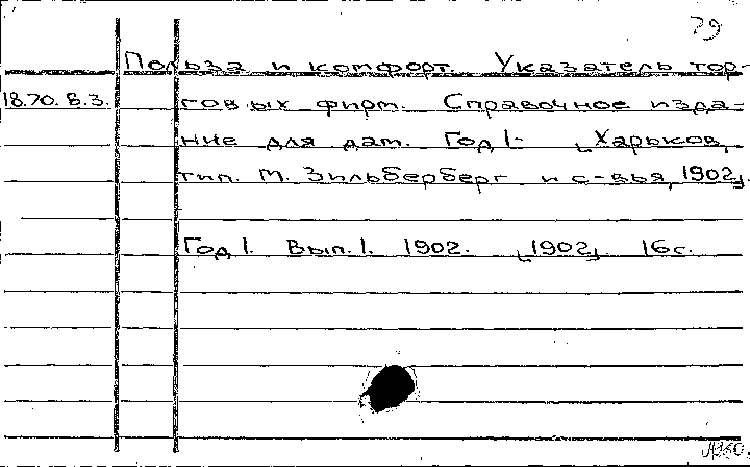 79
Польза и комфорт. Указатель тор-
18.70.8.3. говых фирм. Справочное изда-
ние для дам. Год I- [Харьков,
тип. М. Зильберберг и с-вья, 1902].
Год I. Вып. I. 1902. [1902] 16 с.